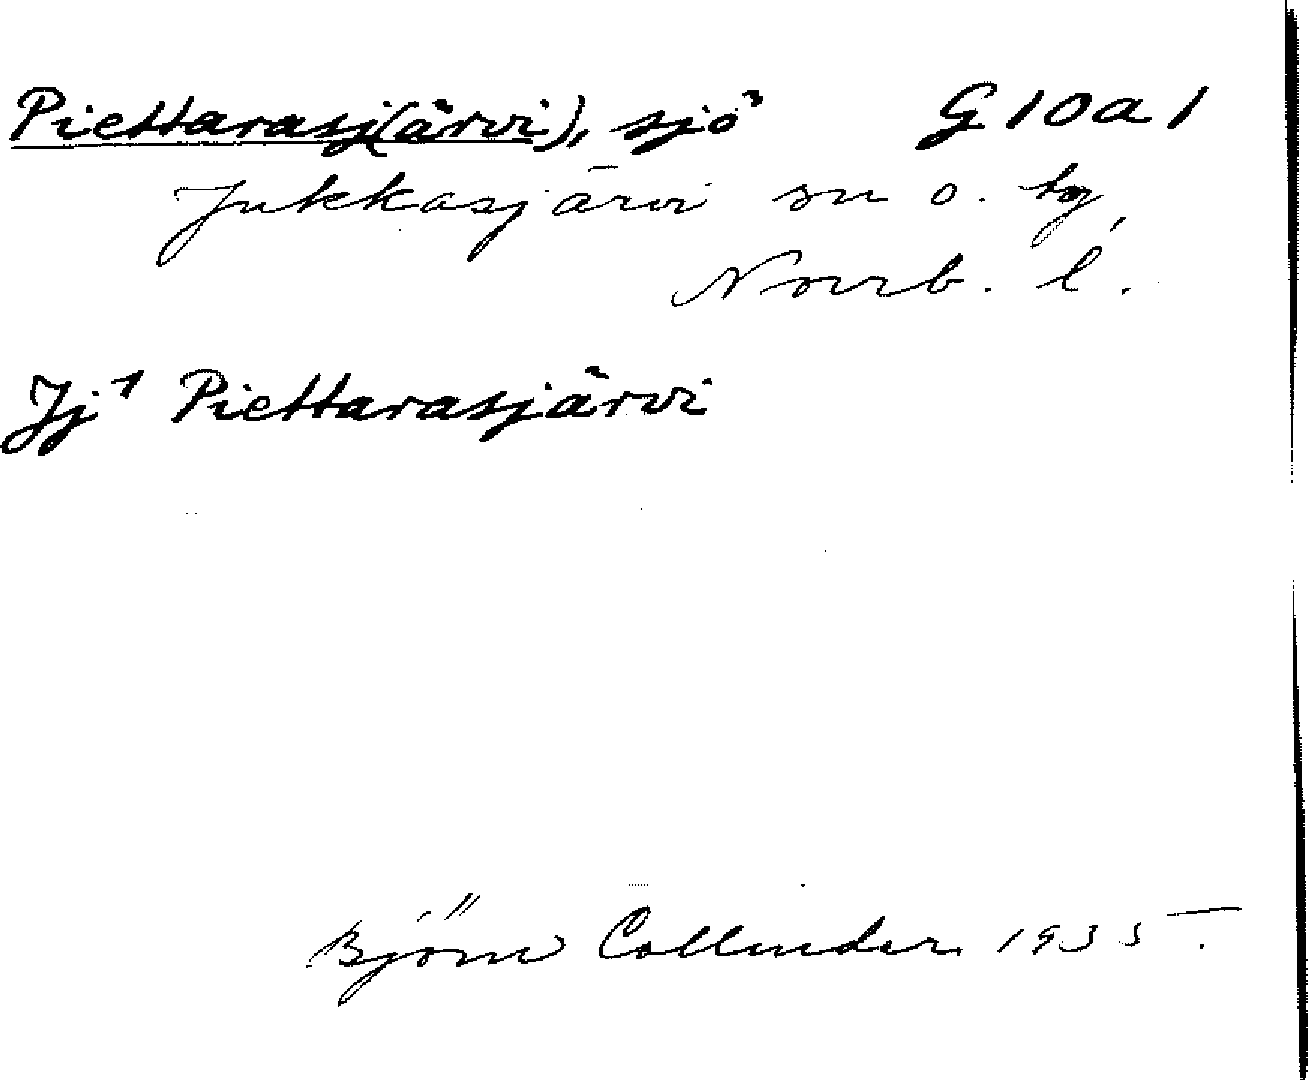 Piettarasj(ärvi), sjö G10a1
Jukkasjärvi sn o. tg,
Norrb. l.
Jj¹ Piettarasjärvi
Björn Collinder 1935.